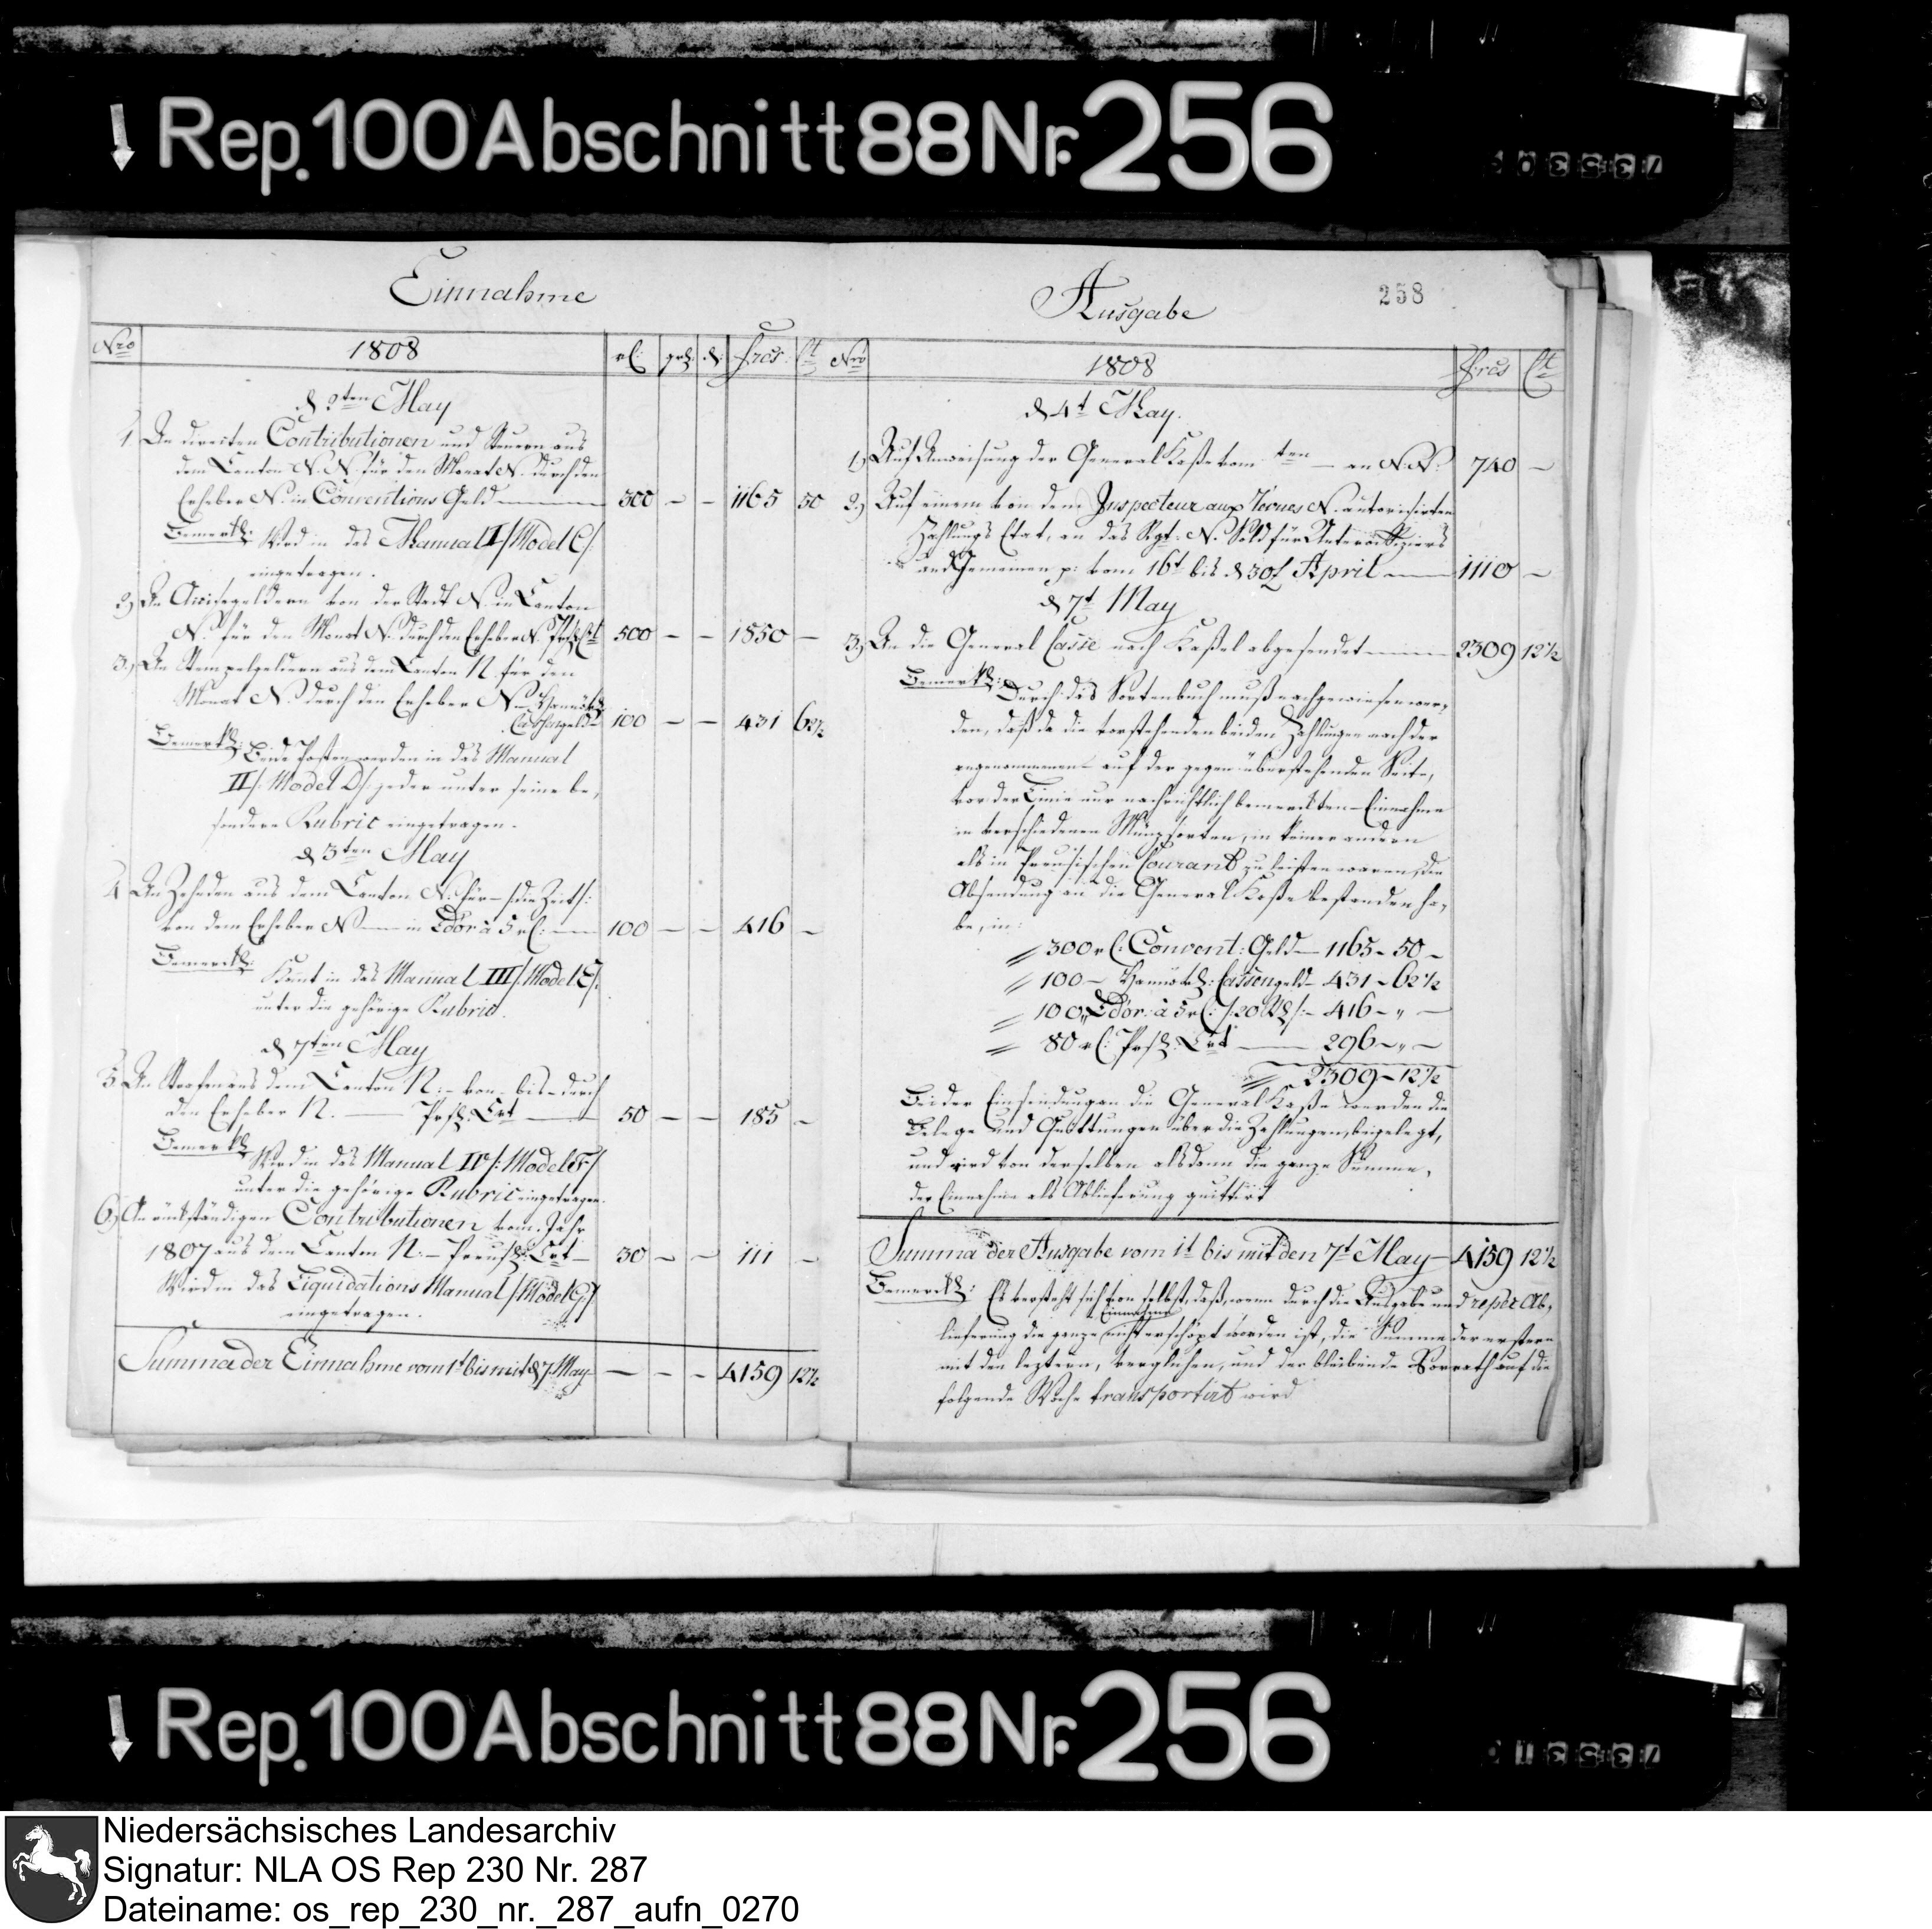 ↓ Rep. 100 Abschnitt 88 Nr. 256
Einnahme
Nro
1808
rl:
gr:
d:
frcs:
Ct
d 2ten May
1 An directen Contributionen und Steuern aus
dem Canton N. N. für den Monat N. durch den
Erheber N. in Conventions Geld — 300 - - 1165 50
Bemerk: Wird in das Manual II /: Model C /:
eingetragen.
2) An Accisegeldern von der Stadt N. in Canton
N. für den Monat N. durch den Erheber N. 500 - - 1850 -
3.) An Stempelgeldern aus dem Canton N. für den
Monat N. durch den Erheber N. Hannöv:
Cassengeld 100 - - 431 62½
Bemerk: Beide Posten werden in das Manual
II /: Model D /: jeder unter seine be,
sondere Rubric eingetragen.
d 3ten May
4 An Zehnden aus dem Canton N. für - /: die Zeit /:
von dem Erheber N — in Ldor à 5 rl: — 100 - - 416 -
Bemerk: Kömt in das Manual III /: Model E /:
unter die gehörige Rubric.
d 7ten May
5 An Strafen aus dem Canton N: - von - bis - durch
den Erheber N. — Prß: Crt — 50 - - 185 -
Bemerk: Wird in das Manual IV /: Model F /
unter die gehörige Rubric eingetragen.
6.) An rückständigen Contributionen vom Jahr
1807 aus dem Canton N: - Preuß: Crt - 30 - - 111 -
Wird in das Liquidations Manual /: Model G /
eingetragen.
Summa der Einnahme vom 1t bis mit d 7 May - — - - 4159 12½
Ausgabe
258
Nro
1808
Frcs
Ct
d 4t May.
1) Auf Anweisung der General Kaße vom ten — an N. N. 740 -
2.) Auf einem von dem Inspecteur aux revues N. autorisirten
Zahlungs Etat, an das Rgt: N. Sold für Unterofficiers
und Gemeinen p: vom 16t bis d 30t April — 1110 -
d 7t May
3.) An die General Casse nach Kaßel abgesendet — 2309 12½
Bemerk: Durch das Sortenbuch muß nachgewiesen wer,
den, daß da die vorstehenden beiden Zahlungen nach der
angenommenen auf der gegen überstehenden Seite,
vor der Linie nur nachrichtlich bemerckten - Einnahme
in verschiedenen Münzsorten, in keiner andern
als in Preusischen Courant zu leisten waren, die
Absendung an die General Kaße bestanden ha,
be, in:
300 rl: Convent: Geld — 1165 - 50 -
100 - Hannöv: Cassengeld - 431 - 62½
100 „ Ldor: à 5 rl: /: 20 /: - 416 - „ -
80 rl: Prß: Crt — 296 - „ -
2309 - 12½
Bei der Einsendung an die General Kaße werden die
Belege und Quittungen über die Zahlungen, beigelegt,
und wird von derselben alsdann die ganze Summe,
der Einnahme als Ablieferung quittirt
Summa der Ausgabe vom 1t bis mit den 7t May - 4159 12½
Bemerk: Es versteht sich von selbst, daß, wenn durch die Ausgabe und resp: Ab,
Einnahme
lieferung die ganze nicht erschöpt worden ist, die Summe der erstern
mit den leztern, verglichen, und der bleibende Vorrath auf die
folgende Woche transportirt wird
↓ Rep. 100 Abschnitt 88 Nr. 256
Niedersächsisches Landesarchiv
Signatur: NLA OS Rep 230 Nr. 287
Dateiname: os_rep_230_nr._287_aufn_0270